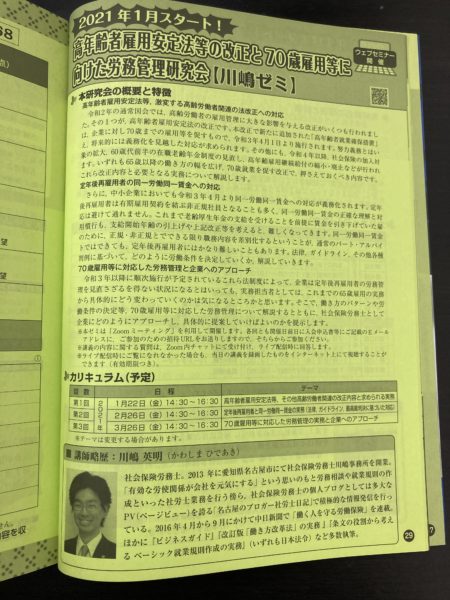 2021年1月スタート!
高年齢者雇用安定法等の改正と70歳雇用等に
向けた労務管理研究会【川嶋ゼミ】
ウェブセミナー
開催
本研究会の概要と特徴
高年齢者雇用安定法等、激変する高齢労働者関連の法改正への対応
令和2年の通常国会では、高齢労働者の雇用管理に大きな影響を与える改正がいくつも行われまし
た。その1つが、高年齢者雇用安定法の改正です。本改正で新たに追加された「高年齢者就業確保措置」
は、企業に対し70歳までの雇用等を促すもので、令和3年4月1日より施行されます。努力義務とはい
え、将来的には義務化を見越した対応が求められます。その他にも、令和4年以降、社会保険の加入対
象の拡大、60歳代前半の在職老齢年金制度の見直し、高年齢雇用継続給付の縮小・廃止などが行われま
す。いずれも65歳以降の働き方の幅を広げ、70歳就業を促す改正で、押さえておくべき内容です。
これら改正内容と必要となる実務について解説します。
定年後再雇用者の同一労働同一賃金への対応
さらに、中小企業においても令和3年4月より同一労働同一賃金への対応が義務化されます。定年
後再雇用者は有期雇用契約を結ぶ非正規社員となることも多く、同一労働同一賃金の正確な理解と対
応は避けて通れません。これまで老齢厚生年金の支給を受けることを前提に賃金を引き下げていた雇
用慣行も、支給開始年齢の引上げや上記改正等を考えると、難しくなってきます。同一労働同一賃金
のために、正規・非正規とでできる限り職務内容を差別化するということが、通常のパート・アルバイ
トではできても、定年後再雇用者にはかなり難しいこともあります。法律、ガイドライン、その他各種
判例に基づいて、どのように労働条件を決定していくか、解説していきます。
70歳雇用等に対応した労務管理と企業へのアプローチ
令和3年以降に順次施行が予定されているこれら法制度によって、企業は定年後再雇用者の労務管
理を見直さざるを得ない状況になるとはいっても、実務担当者としては、これまでの65歳雇用の実務
から具体的にどう変わっていくのかは気になるところかと思います。そこで、働き方のパターンや労
働条件の決定等、70歳雇用等に対応した労務管理について解説するとともに、社会保険労務士として
企業にどのようにアプローチし、具体的に提案していけばよいのかを提示します。
※本ゼミは「Zoomミーティング」を利用して開催します。各回とも開催日前日に入会申込書等にご記載のEメール
アドレスに、ご参加のための招待URLをお送りしますので、そちらからご参加ください。
※講義の内容に関する質問は、Zoom内チャットにて受け付け、ライブ配信時に回答します。
※ライブ配信時にご覧になれなかった場合も、当日の講義を録画したものをインターネット上にて視聴することが
できます(有効期限つき)。
カリキュラム(予定)
回数 日程 テーマ
第1回 2021年 1月22日(金)14:30~16:30 高年齢者雇用安定法等、その他高齢労働者関連の改正内容と求められる実務
第2回 2月26日(金)14:30~16:30 定年後再雇用者と同一労働同一賃金の実務(法律、ガイドライン、最高裁判決に基づいた対応)
第3回 3月26日(金)14:30~16:30 70歳雇用等に対応した労務管理の実務と企業へのアプローチ
※テーマは変更する場合があります。
■講師略歴:川嶋 英明(かわしま ひであき)
社会保険労務士。2013年に愛知県名古屋市にて社会保険労務士川嶋事務所を開業。
「有効な労使関係が会社を元気にする」という思いのもと労務相談や就業規則の作
成といった社労士業務を行う傍ら、社会保険労務士の個人ブログとしては多大な
PV(ページビュー)を誇る「名古屋のブロガー社労士日記」で積極的な情報発信を行っ
ている。2016年4月から9月にかけて中日新聞で「働く人を守る労働保険」を連載。
ほかに『ビジネスガイド』『改訂版「働き方改革法」の実務』『条文の役割から考え
る ベーシック就業規則作成の実務』(いずれも日本法令)など多数執筆。
29